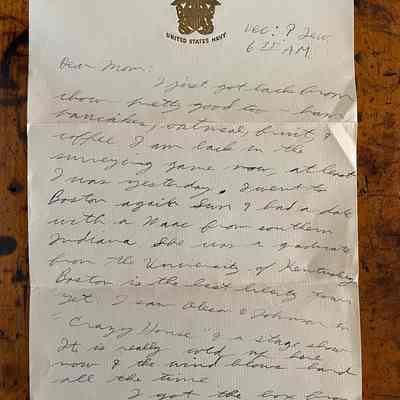 UNITED STATES NAVY
Dec. 8
6 25 AM
Dear Mom:
I just got back from
chow pretty good too - ham
pancakes, oatmeal, fruit &
coffee I am back in the
surveying game now, at least
I was yesterday. I went to
Boston again Sun & had a date
with a Waac from southern
Indiana She was a graduate
from the University of Kentucky
Boston is the best liberty town
yet I saw Olsen & Johnson in
"Crazy House" & a stage show
It is really cold up here
now & the wind blows hard
all the time
I got the box from